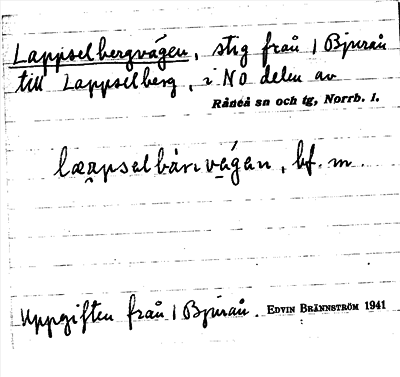 Lappselbergvägen, stig från 1 Bjurån
till Lappselberg, i NO delen av
Råneå sn och tg, Norrb. l.
læppsəlbärɩvä́gən, bf. m.
Uppgiften från 1 Bjurån. EDVIN BRÄNNSTRÖM 1941